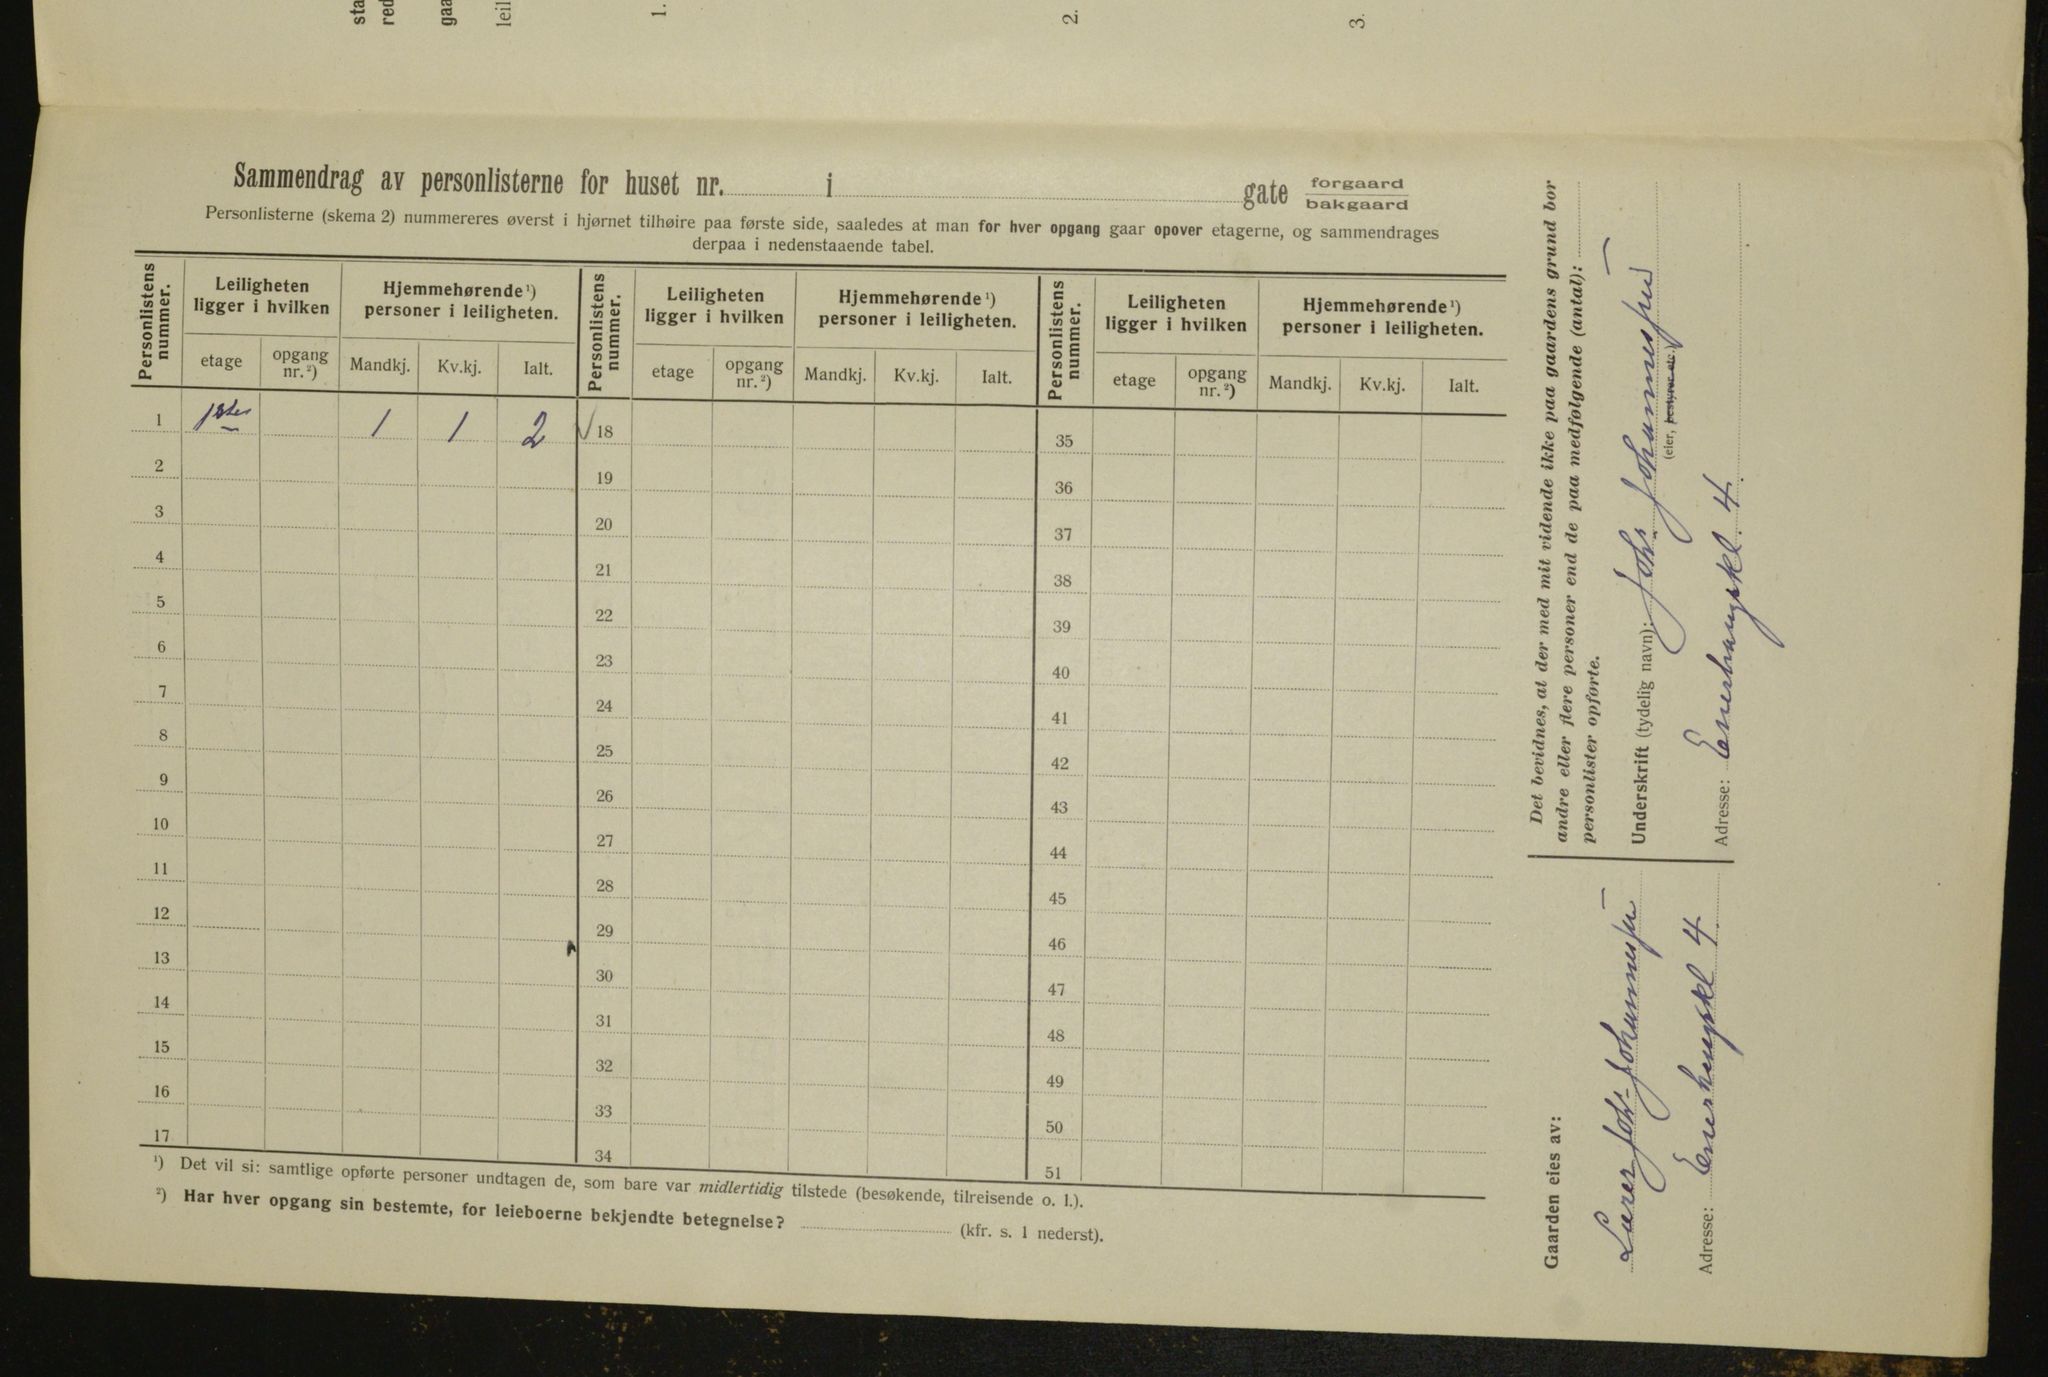 sta
red
gaa
leil
1.
2.
3.
Sammendrag av personlisterne for huset nr. i gate forgaard
bakgaard
Personlisterne (skema 2) nummereres øverst i hjørnet tilhøire paa første side, saaledes at man for hver opgang gaar opover etagerne, og sammendrages
derpaa i nedenstaaende tabel.
Personlistens nummer. Leiligheten ligger i hvilken Hjemmehørende ¹) personer i leiligheten. Personlistens nummer. Leiligheten ligger i hvilken Hjemmehørende ¹) personer i leiligheten. Personlistens nummer. Leiligheten ligger i hvilken Hjemmehørende ¹) personer i leiligheten.
etage opgang nr. ²) Mandkj. Kv.kj. Ialt. etage opgang nr. ²) Mandkj. Kv.kj. Ialt. etage opgang nr. ²) Mandkj. Kv.kj. Ialt.
1 1ste 1 1 2 √ 18 35
2 19 36
3 20 37
4 21 38
5 22 39
6 23 40
7 24 41
8 25 42
9 26 43
10 27 44
11 28 45
12 29 46
13 30 47
14 31 48
15 32 49
16 33 50
17 34 51
¹) Det vil si: samtlige opførte personer undtagen de, som bare var midlertidig tilstede (besøkende, tilreisende o. l.).
²) Har hver opgang sin bestemte, for leieboerne bekjendte betegnelse? (kfr. s. 1 nederst).
Gaarden eies av:
Lærer Johs Johannessen
Adresse: 4
Det bevidnes, at der med mit vidende ikke paa gaardens grund bor
andre eller flere personer end de paa medfølgende (antal):
personlister opførte.
Underskrift (tydelig navn): Johs. Johannessen
(eier, bestyrer etc.)
Adresse: Enerhaugkl. 4.